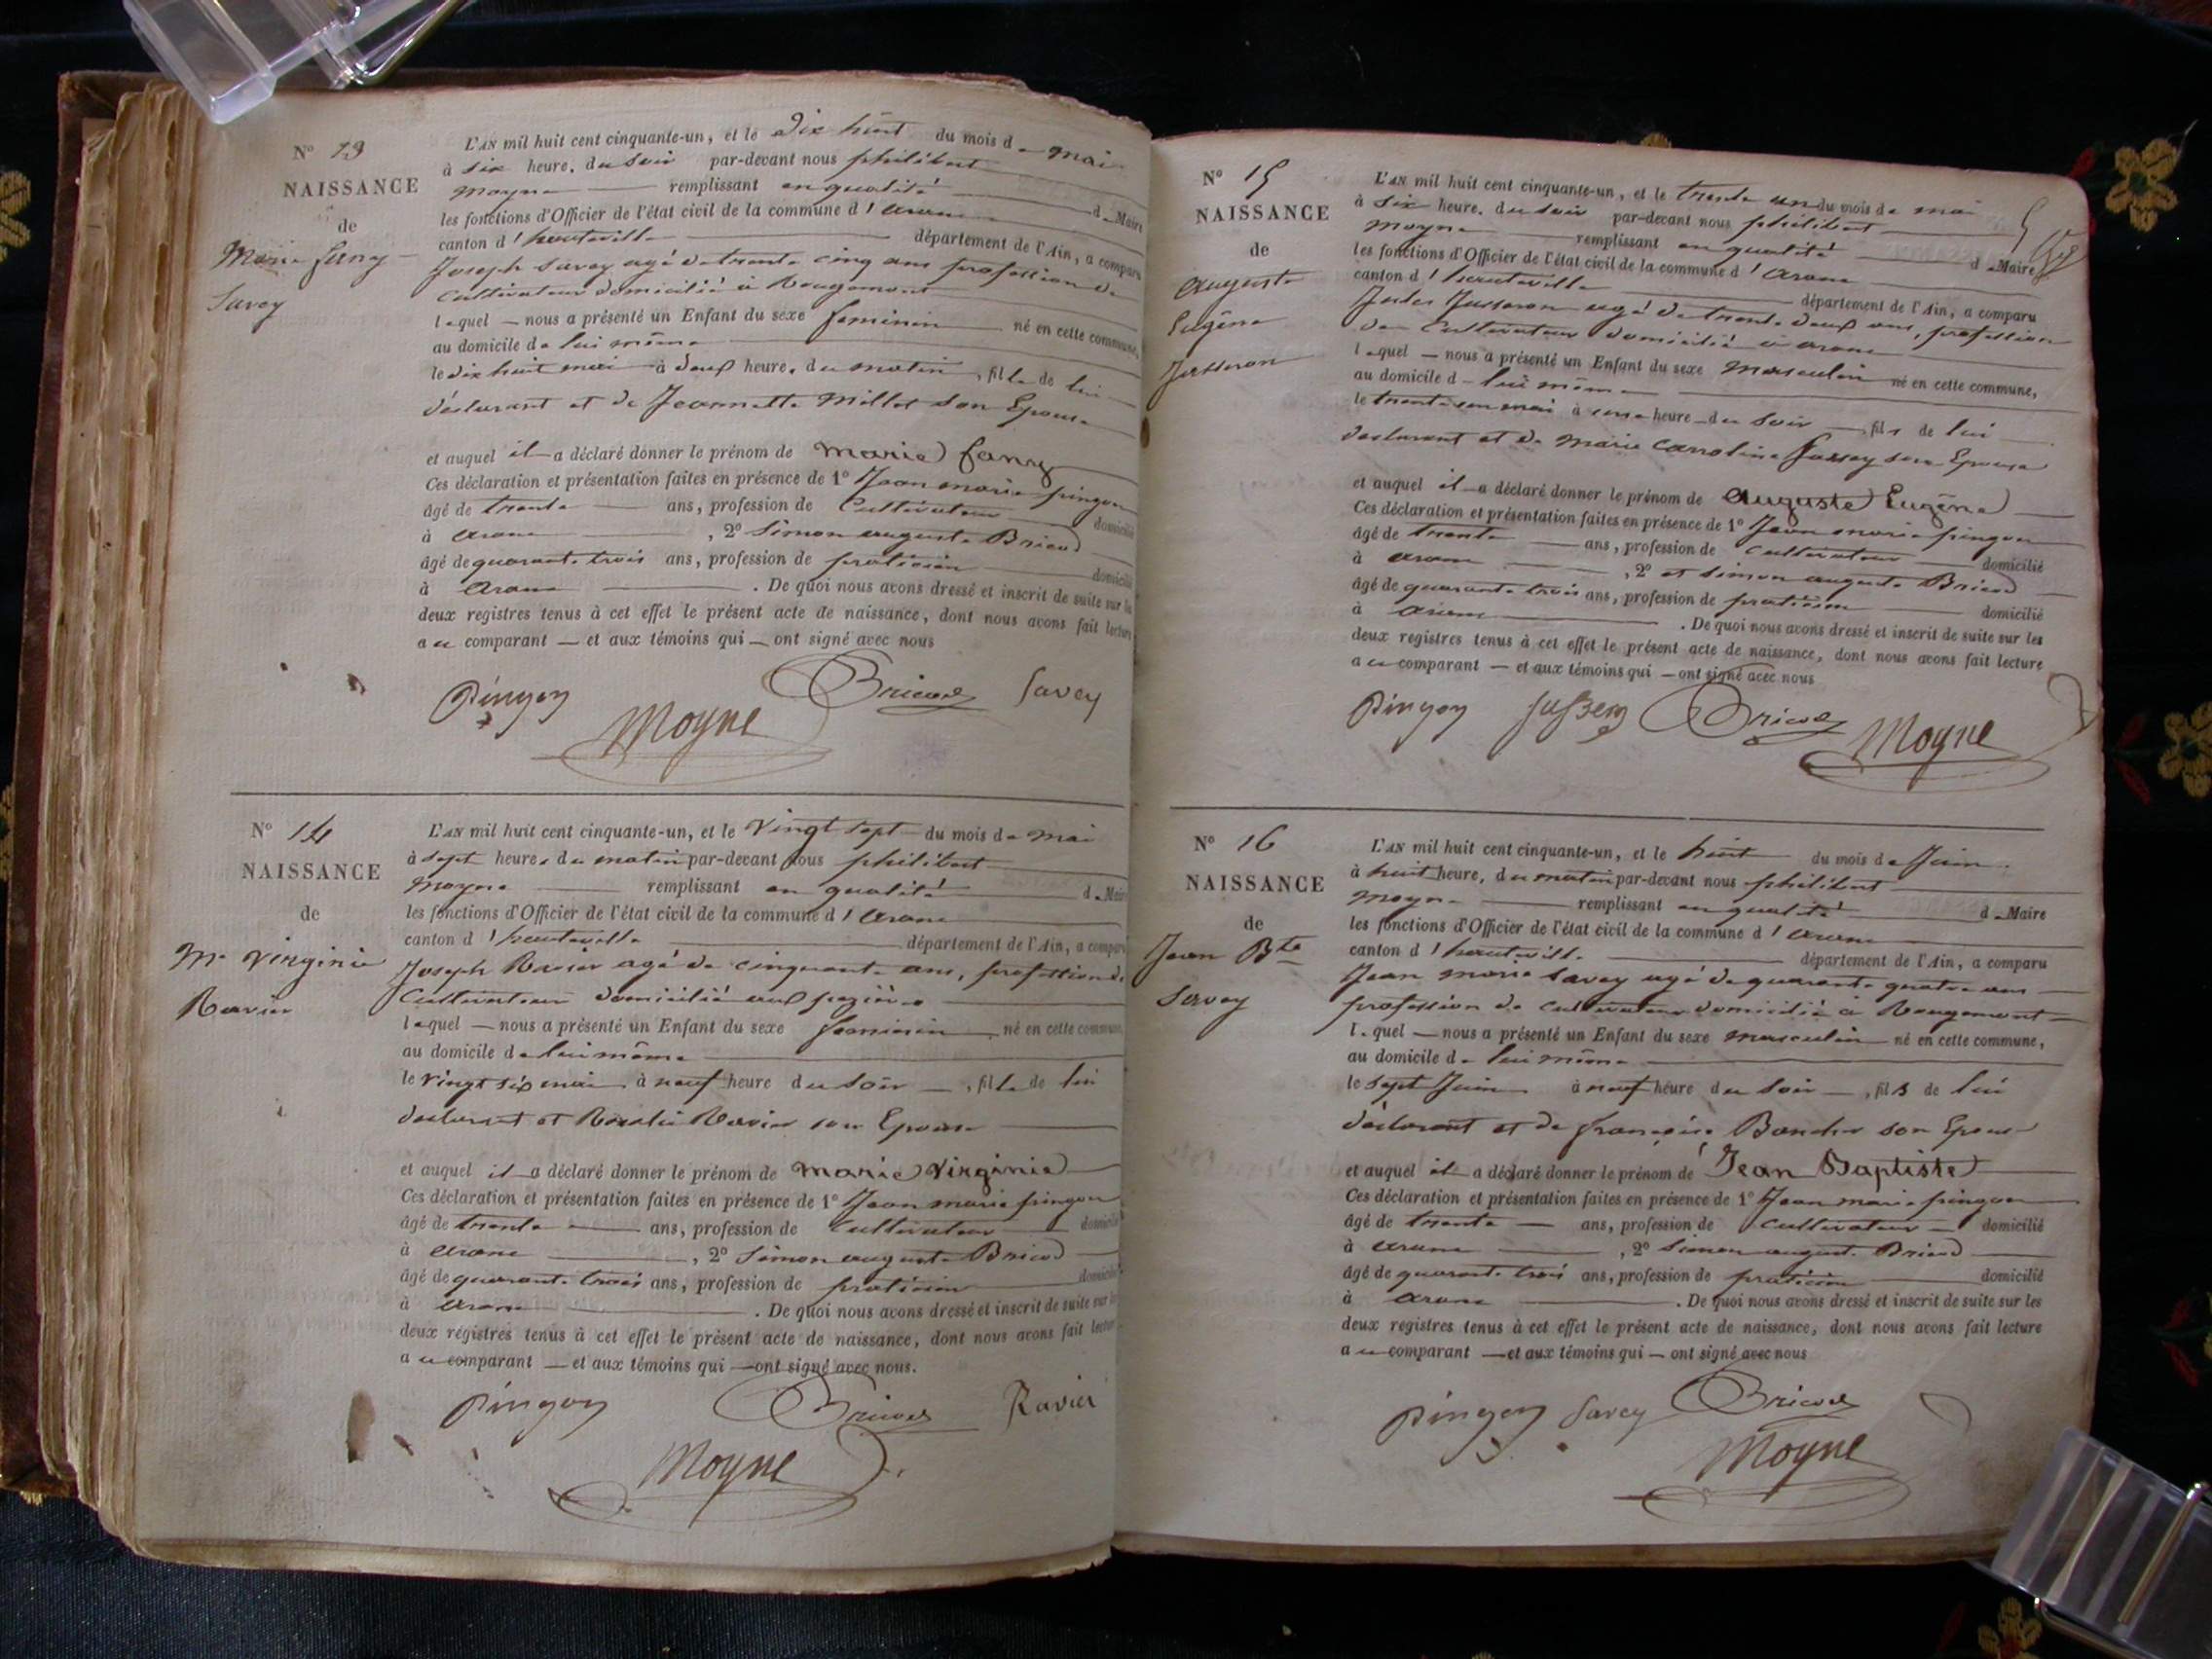 N° 13
NAISSANCE
de
Marie fany
Savey
L'AN mil huit cent cinquante-un, et le Dix huit du mois de mai
à six heures du soir par-devant nous philibert
moyne remplissant en qualité de Maire
les fonctions d'Officier de l'état civil de la commune d'arane
canton d'hauteville département de l'Ain, a comparu
Joseph Savey agé de trente cinq ans profession de
Cultivateur domicilié à Rougemont
lequel nous a présenté un Enfant du sexe feminin né en cette commune,
au domicile de lui même
le dix huit mai à deux heures du matin, fille de lui
déclarant et de Jeannette Millet son Epouse
et auquel il a déclaré donner le prénom de marie fany
Ces déclaration et présentation faites en présence de 1° Jean marie pingon
âgé de trente ans, profession de Cultivateur domicilié
à arane, 2° Simon auguste Bricod
âgé de quarante trois ans, profession de praticien domicilié
à Arane. De quoi nous avons dressé et inscrit de suite sur les
deux registres tenus à cet effet le présent acte de naissance, dont nous avons fait lecture
au comparant et aux témoins qui ont signé avec nous
Pingon Bricod Savey
Moyne
N° 14
NAISSANCE
de
Me Virginie
Ravier
L'AN mil huit cent cinquante-un, et le Vingt sept du mois de mai
à sept heures du matin par-devant nous philibert
moyne remplissant en qualité de Maire
les fonctions d'Officier de l'état civil de la commune d'arane
canton d'hauteville département de l'Ain, a comparu
Joseph Ravier agé de cinquante ans, profession de
Cultivateur domicilié aux
lequel nous a présenté un Enfant du sexe feminin né en cette commune,
au domicile de lui même
le vingt six mai à neuf heure du soir, fille de lui
déclarant et Rosalie Ravier son Epouse
et auquel il a déclaré donner le prénom de marie Virginie
Ces déclaration et présentation faites en présence de 1° Jean marie pingon
âgé de trente ans, profession de Cultivateur domicilié
à arane, 2° Simon auguste Bricod
âgé de quarante trois ans, profession de praticien domicilié
à arane. De quoi nous avons dressé et inscrit de suite sur les
deux registres tenus à cet effet le présent acte de naissance, dont nous avons fait lecture
au comparant et aux témoins qui ont signé avec nous.
Pingon Bricod Ravier
Moyne
N° 15
NAISSANCE
de
Auguste
Eugène
Jusseron
L'AN mil huit cent cinquante-un, et le trente un du mois de mai
à six heures du soir par-devant nous philibert
moyne remplissant en qualité de Maire
les fonctions d'Officier de l'état civil de la commune d'Arane
canton d'hauteville département de l'Ain, a comparu
Jules Jusseron agé de trente deux ans, profession
de Cultivateur domicilié à arane
lequel nous a présenté un Enfant du sexe Masculin né en cette commune,
au domicile de lui même
le trente un mai à une heure du soir fils de lui
declarant et de Marie Carroline son Epouse
et auquel il a déclaré donner le prénom de Auguste Eugène
Ces déclaration et présentation faites en présence de 1° Jean marie pingon
âgé de trente ans, profession de Cultivateur domicilié
à arane, 2° et Simon auguste Bricod
âgé de quarante trois ans, profession de praticien domicilié
à arane. De quoi nous avons dressé et inscrit de suite sur les
deux registres tenus à cet effet le présent acte de naissance, dont nous avons fait lecture
au comparant et aux témoins qui ont signé avec nous
Pingon Bricod
Moyne
N° 16
NAISSANCE
de
Jean Bte
Savey
L'AN mil huit cent cinquante-un, et le huit du mois de Juin
à huit heures du matin par-devant nous philibert
moyne remplissant en qualité de Maire
les fonctions d'Officier de l'état civil de la commune d'arane
canton d'hauteville département de l'Ain, a comparu
Jean marie Savey agé de quarante quatre ans
profession de cultivateur domicilié à Rougemont
lequel nous a présenté un Enfant du sexe masculin né en cette commune,
au domicile de lui même
le sept Juin à neuf heure du soir, fils de lui
déclarant et de françoise son Epouse
et auquel il a déclaré donner le prénom de Jean Baptiste
Ces déclaration et présentation faites en présence de 1° Jean marie pingon
âgé de trente ans, profession de Cultivateur domicilié
à arane, 2° Simon auguste Bricod
âgé de quarante trois ans, profession de praticien domicilié
à arane. De quoi nous avons dressé et inscrit de suite sur les
deux registres tenus à cet effet le présent acte de naissance, dont nous avons fait lecture
au comparant et aux témoins qui ont signé avec nous
Pingon Savey Bricod
Moyne